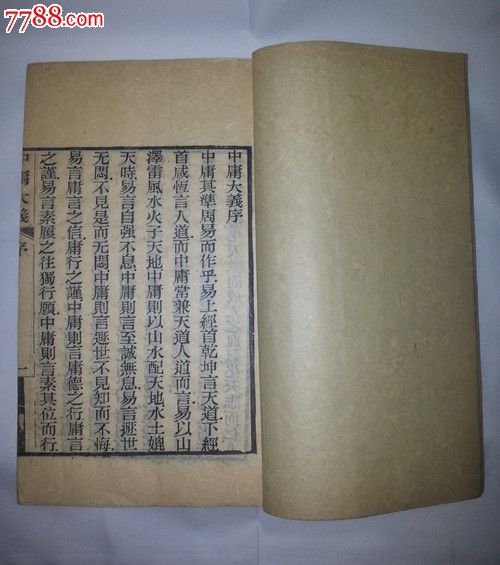 7788.com
中庸大義序
中庸其準周易而作乎易上經首乾坤言天道下經
首咸恆言人道而中庸常兼天道人道而言易以山
澤雷風水火子天地中庸則以山水配天地水土媲
天時易言自强不息中庸則言至誠無息易言遯世
无悶不見是而无悶中庸則言遯世不見知而不悔
易言庸言之信庸行之謹中庸則言庸德之行庸言
之謹易言素履之往獨行願中庸則言素其位而行
中庸大義 序 一